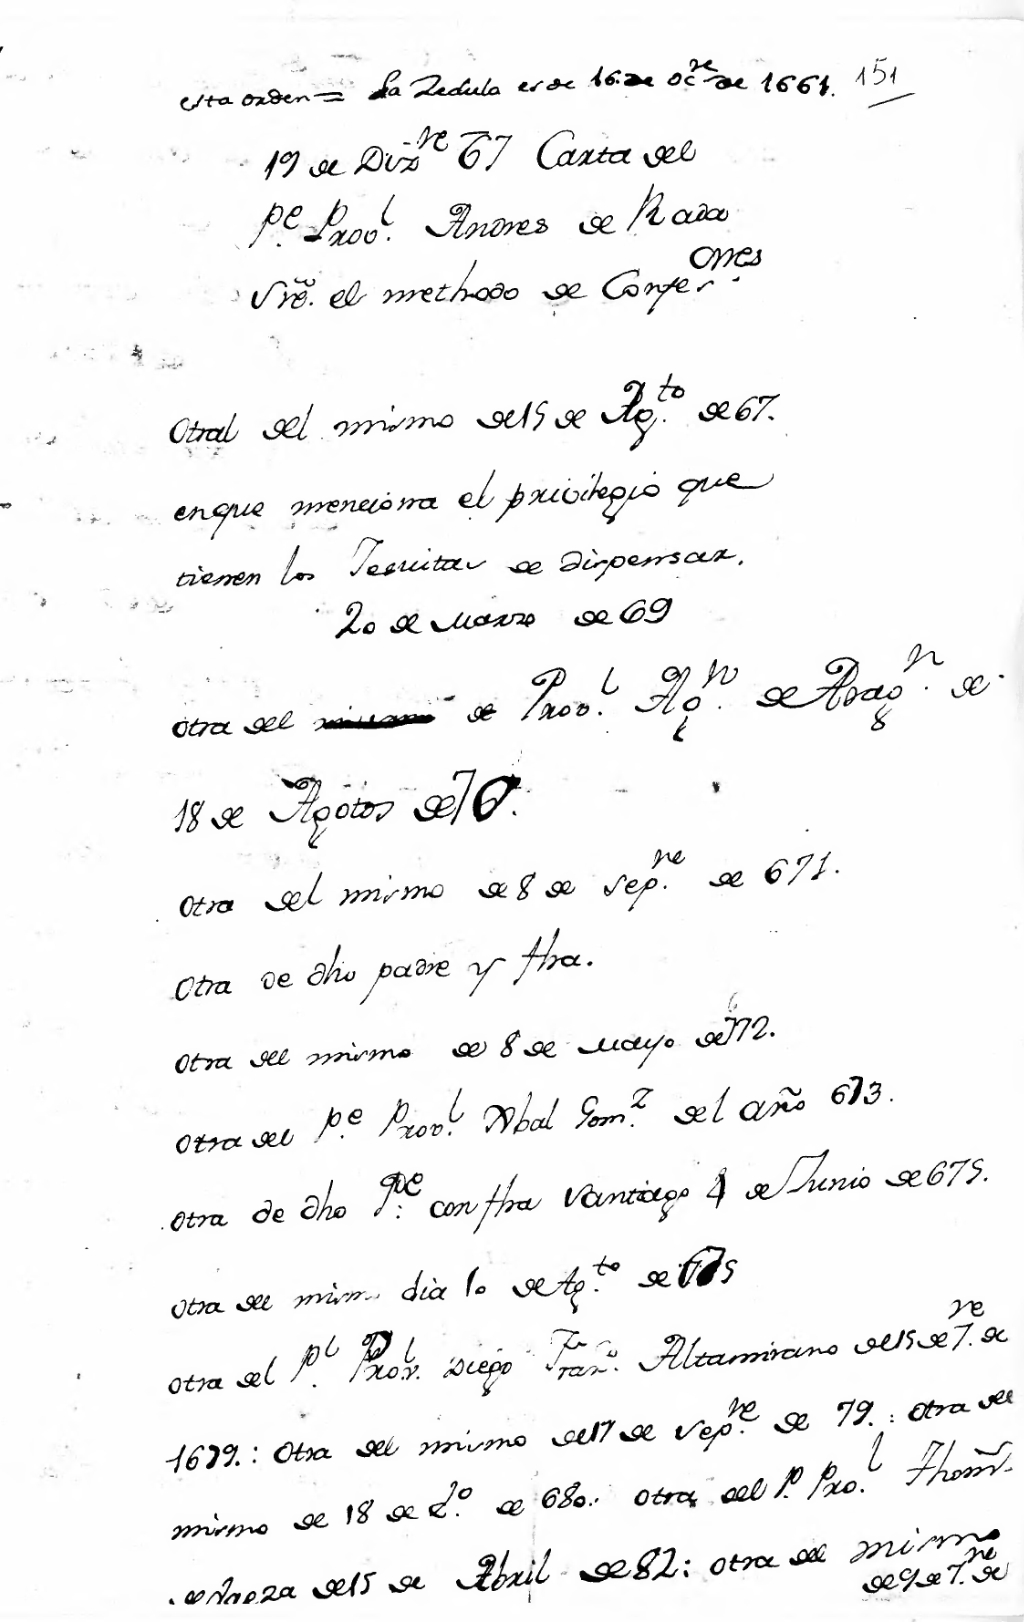 esta orden = La Zedula es de 16 de Oc.re de 1661. 151
19 de Diz.re 67 Carta del
P.e Prov.l Andres de Rada
sre. el methodo de Confes.ones
Otra del mismo de 15 de Ag.to de 67.
enque menciona el privilegio que
tienen los Jesuitas de dispensar.
20 de Marzo de 69
otra del de Prov.l Ag.n de Arag.n de
18 de Agotos de 70.
otra del mismo de 8 de sep.re de 671.
otra de dho padre y fha.
otra del mismo de 8 de Mayo de 72.
otra del P.e Prov.l Xbal Gom.z del año 673.
otra de dho P.e con fha Santiago 4 de Junio de 675.
otra del mism. dia 10 de Ag.to de 675
otra del P.l Prov.l Diego Fran.co Altamirano de 15 de 7.re de
1679.: otra del mismo de 17 de sep.re de 79.: otra del
mismo de 18 de de 680.: otra del P. Pro.l Thom.
de 15 de Abril de 82: otra del mismo
de 9 de 7.re de